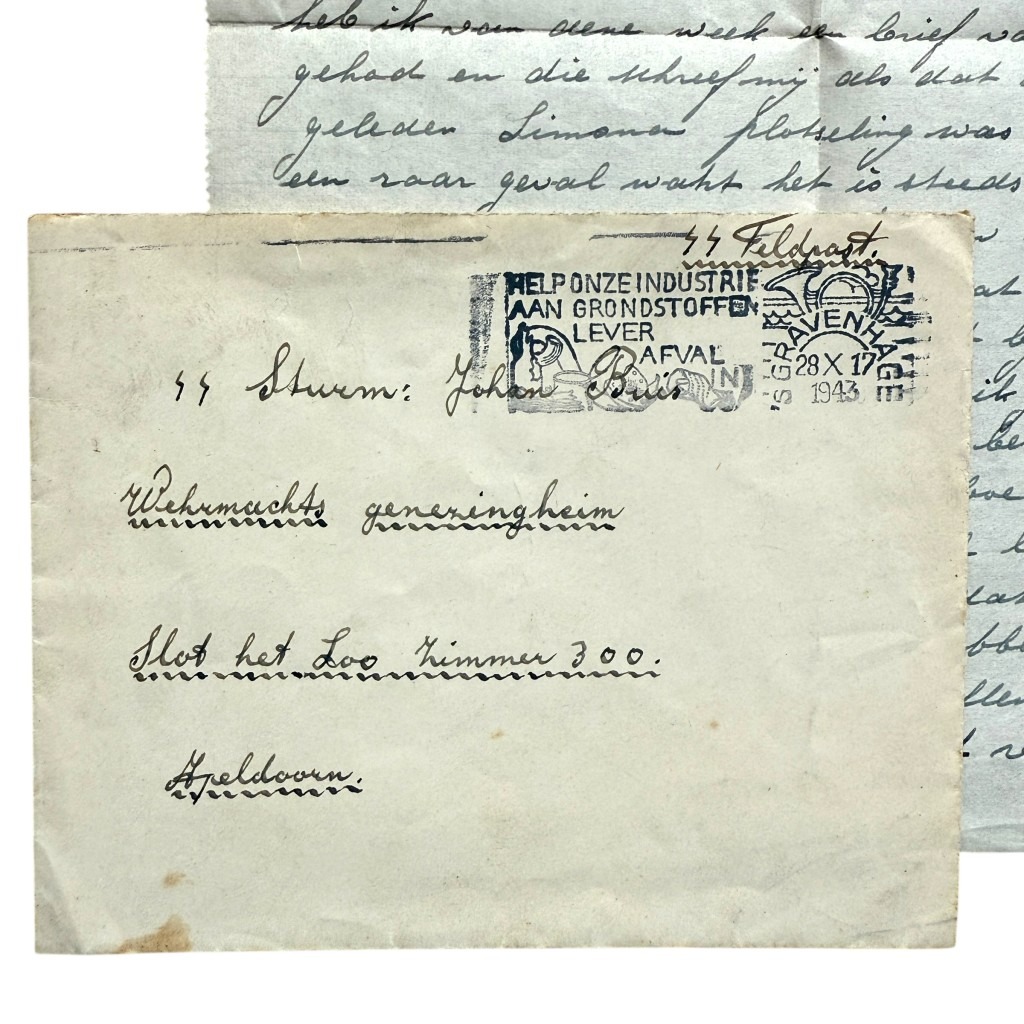 heb ik van deze week een brief
gehad en die schreef mij als dat
geleden Simona plotseling was
een raar geval want het is steeds
SS Feldpost.
HELP ONZE INDUSTRIE
AAN GRONDSTOFFEN
LEVER
AFVAL
IN
'S GRAVENHAGE
28 X 17
1943
SS Sturm: Johan Buis
Wehrmachts genezingheim
Slot het Loo Zimmer 300.
Apeldoorn.
ik